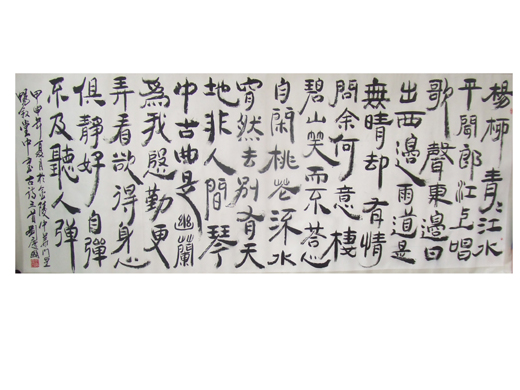 楊柳青々江水
平聞郎江上唱
歌聲東邊日
出西邊雨道是
無晴却有情
問余何意棲
碧山笑而不荅心
自閑桃花流水
窅然去別有天
地非人間琴
中古曲是幽蘭
為我慇勤更
弄看欲得身心
俱靜好自彈
不及聽人彈
甲申年夏月於